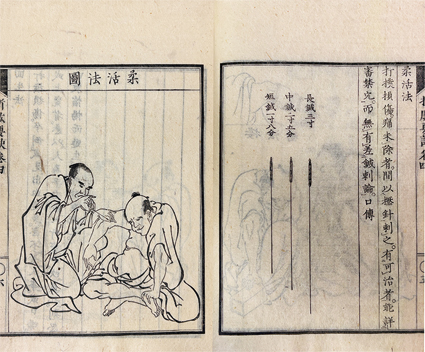 柔活法
打撲損傷未除者。間以針刺之。有可治者。能詳
審禁穴。而無有差。鍼刺論口傳
長鍼三寸
中鍼二寸五分
短鍼一寸八分
柔活法圖
卷四
〇六